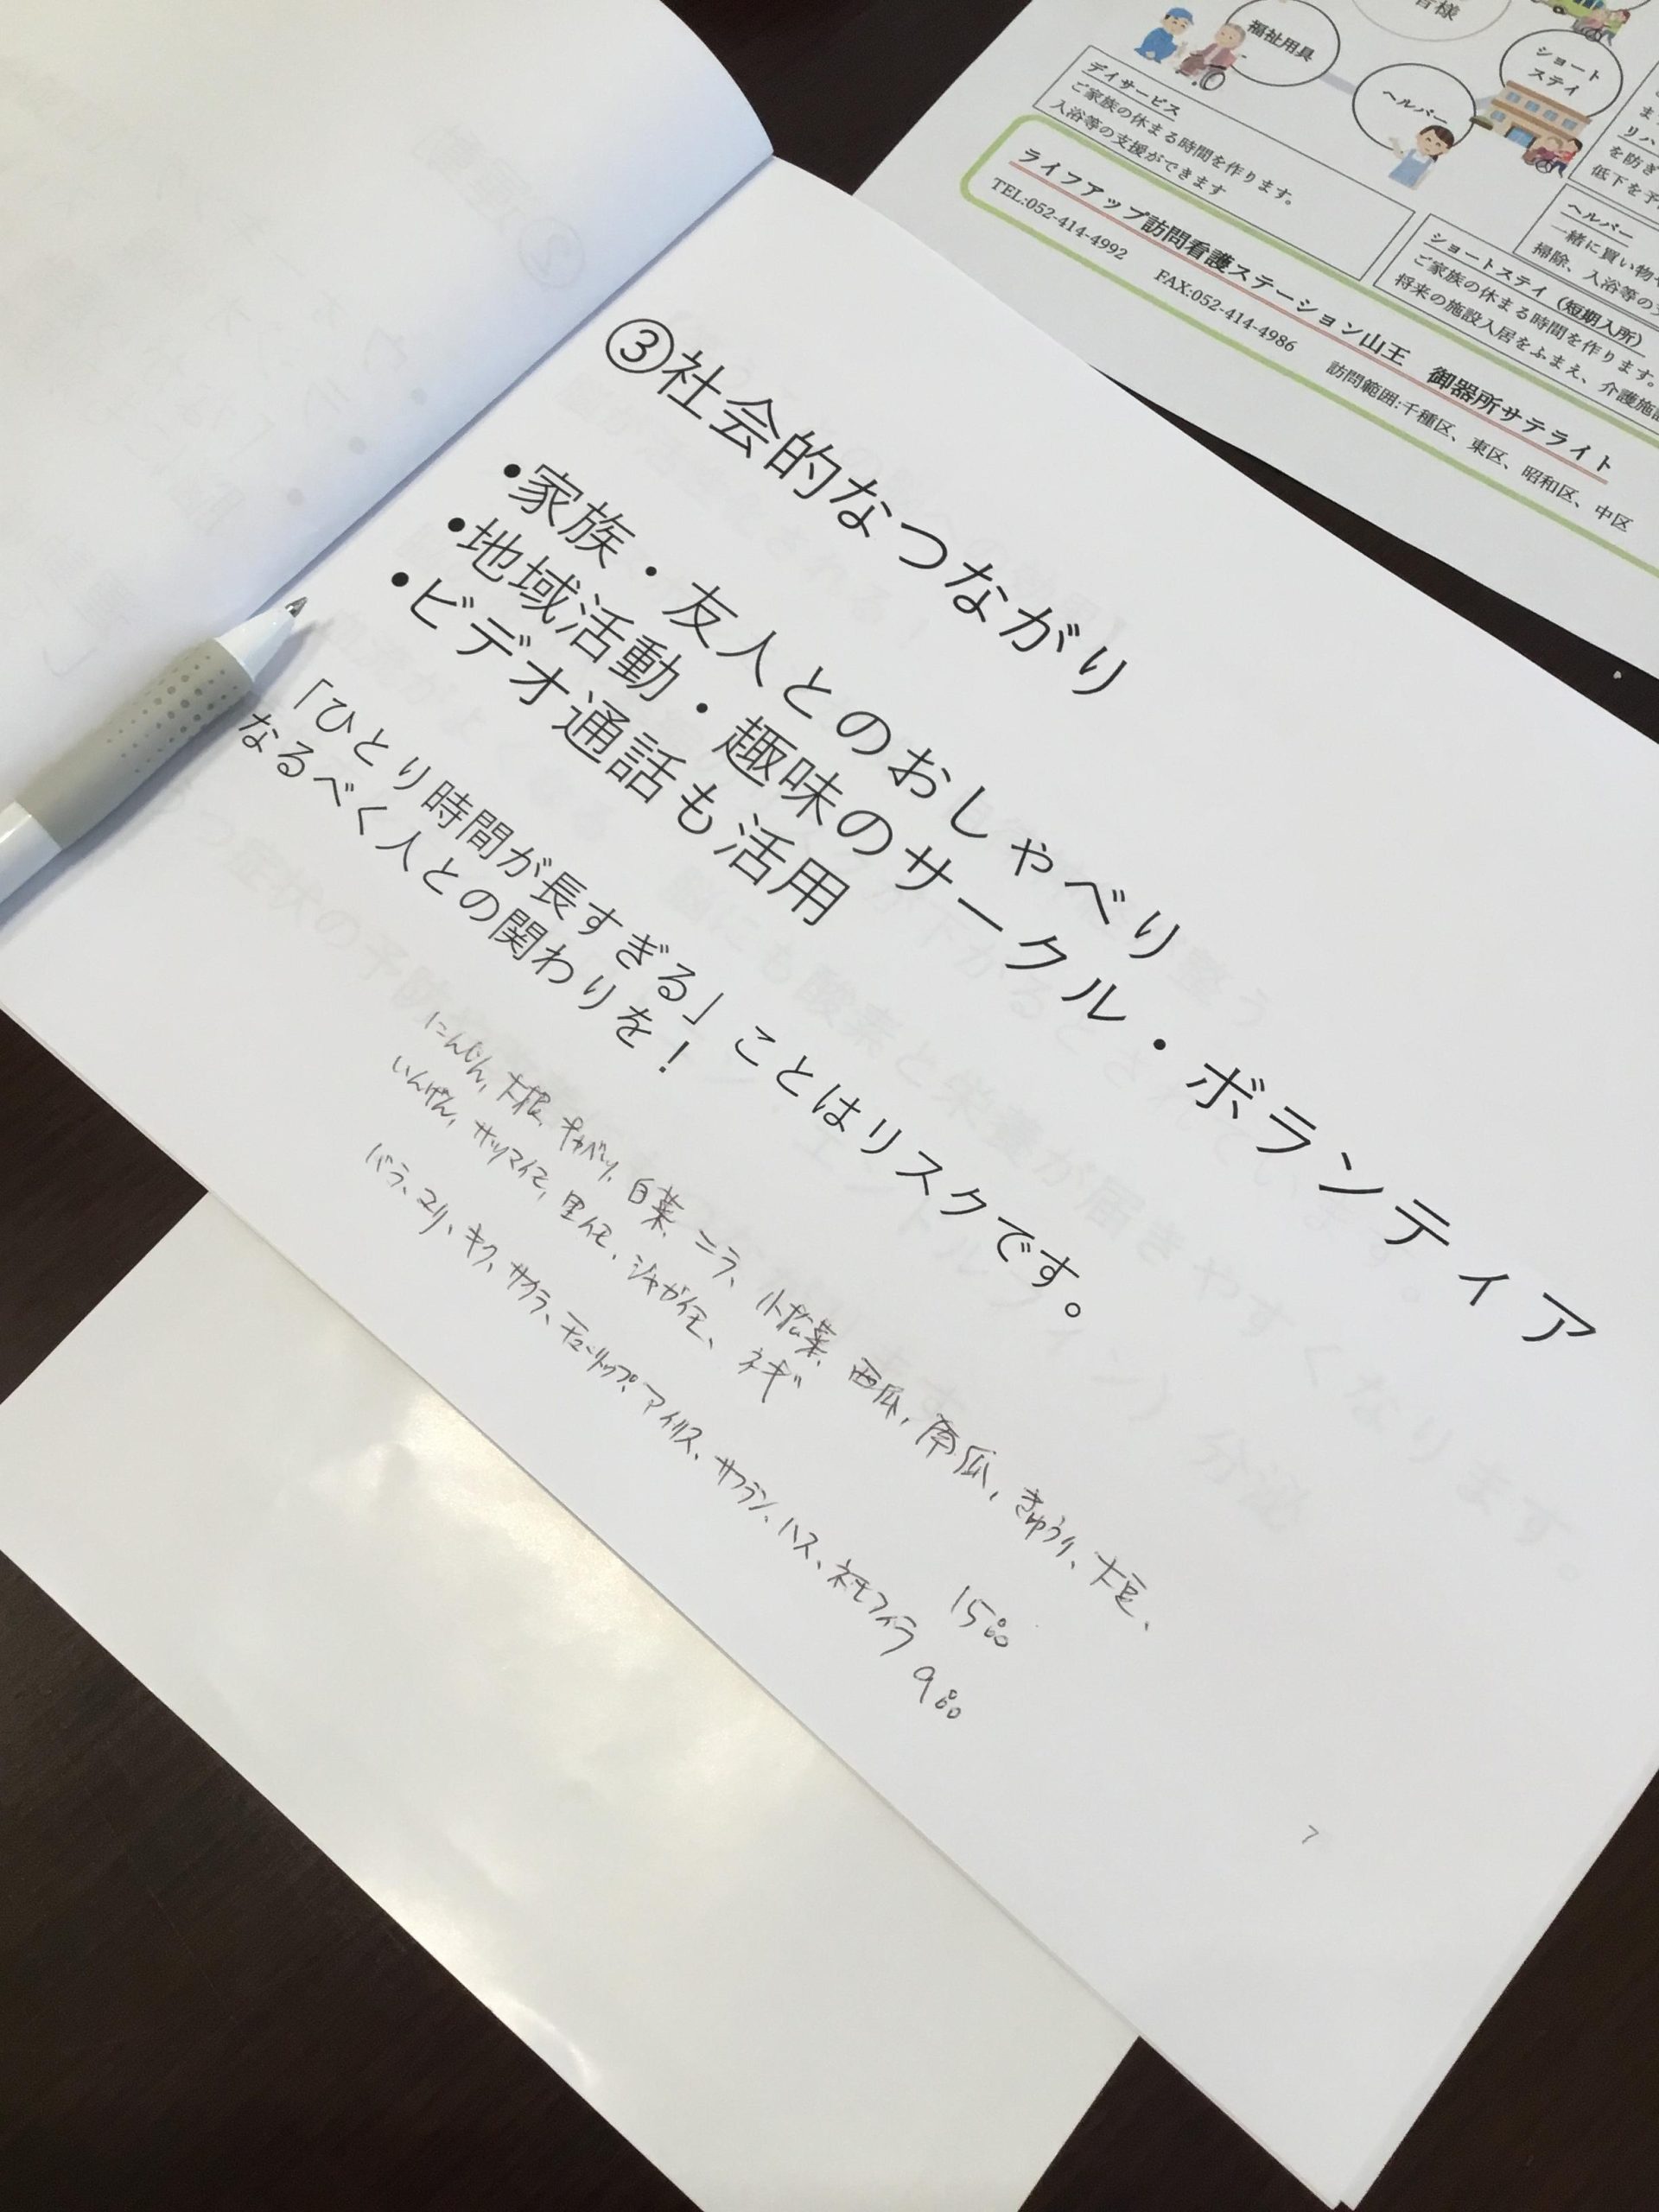 ③社会的なつながり
•家族・友人とのおしゃべり
•地域活動・趣味のサークル・ボランティア
•ビデオ通話も活用
「ひとり時間が長すぎる」ことはリスクです。
なるべく人との関わりを！
にんじん, 大根, キャベツ, 白菜, ニラ、小松菜, 西瓜, 南瓜, きゅうり、大豆、
いんげん, サツマイモ, 里イモ、ジャガイモ、ネギ 15
バラ、ユリ、キク、サクラ、チューリップ、アイリス、サフラン、ハス、ネモフィラ 9
7
者様
福祉用具
ショート
ステイ
ヘルパー
デイサービス
ご家族の休まる時間を作ります。
入浴等の支援ができます
リハ
を防ぎ
低下を予
ヘルパー
一緒に買い物や
掃除、入浴等の
ショートステイ（短期入所）
ご家族の休まる時間を作ります。
将来の施設入居をふまえ、介護施設
ライフアップ訪問看護ステーション山王　御器所サテライト
TEL:052-414-4992　FAX:052-414-4986　訪問範囲:千種区、東区、昭和区、中区